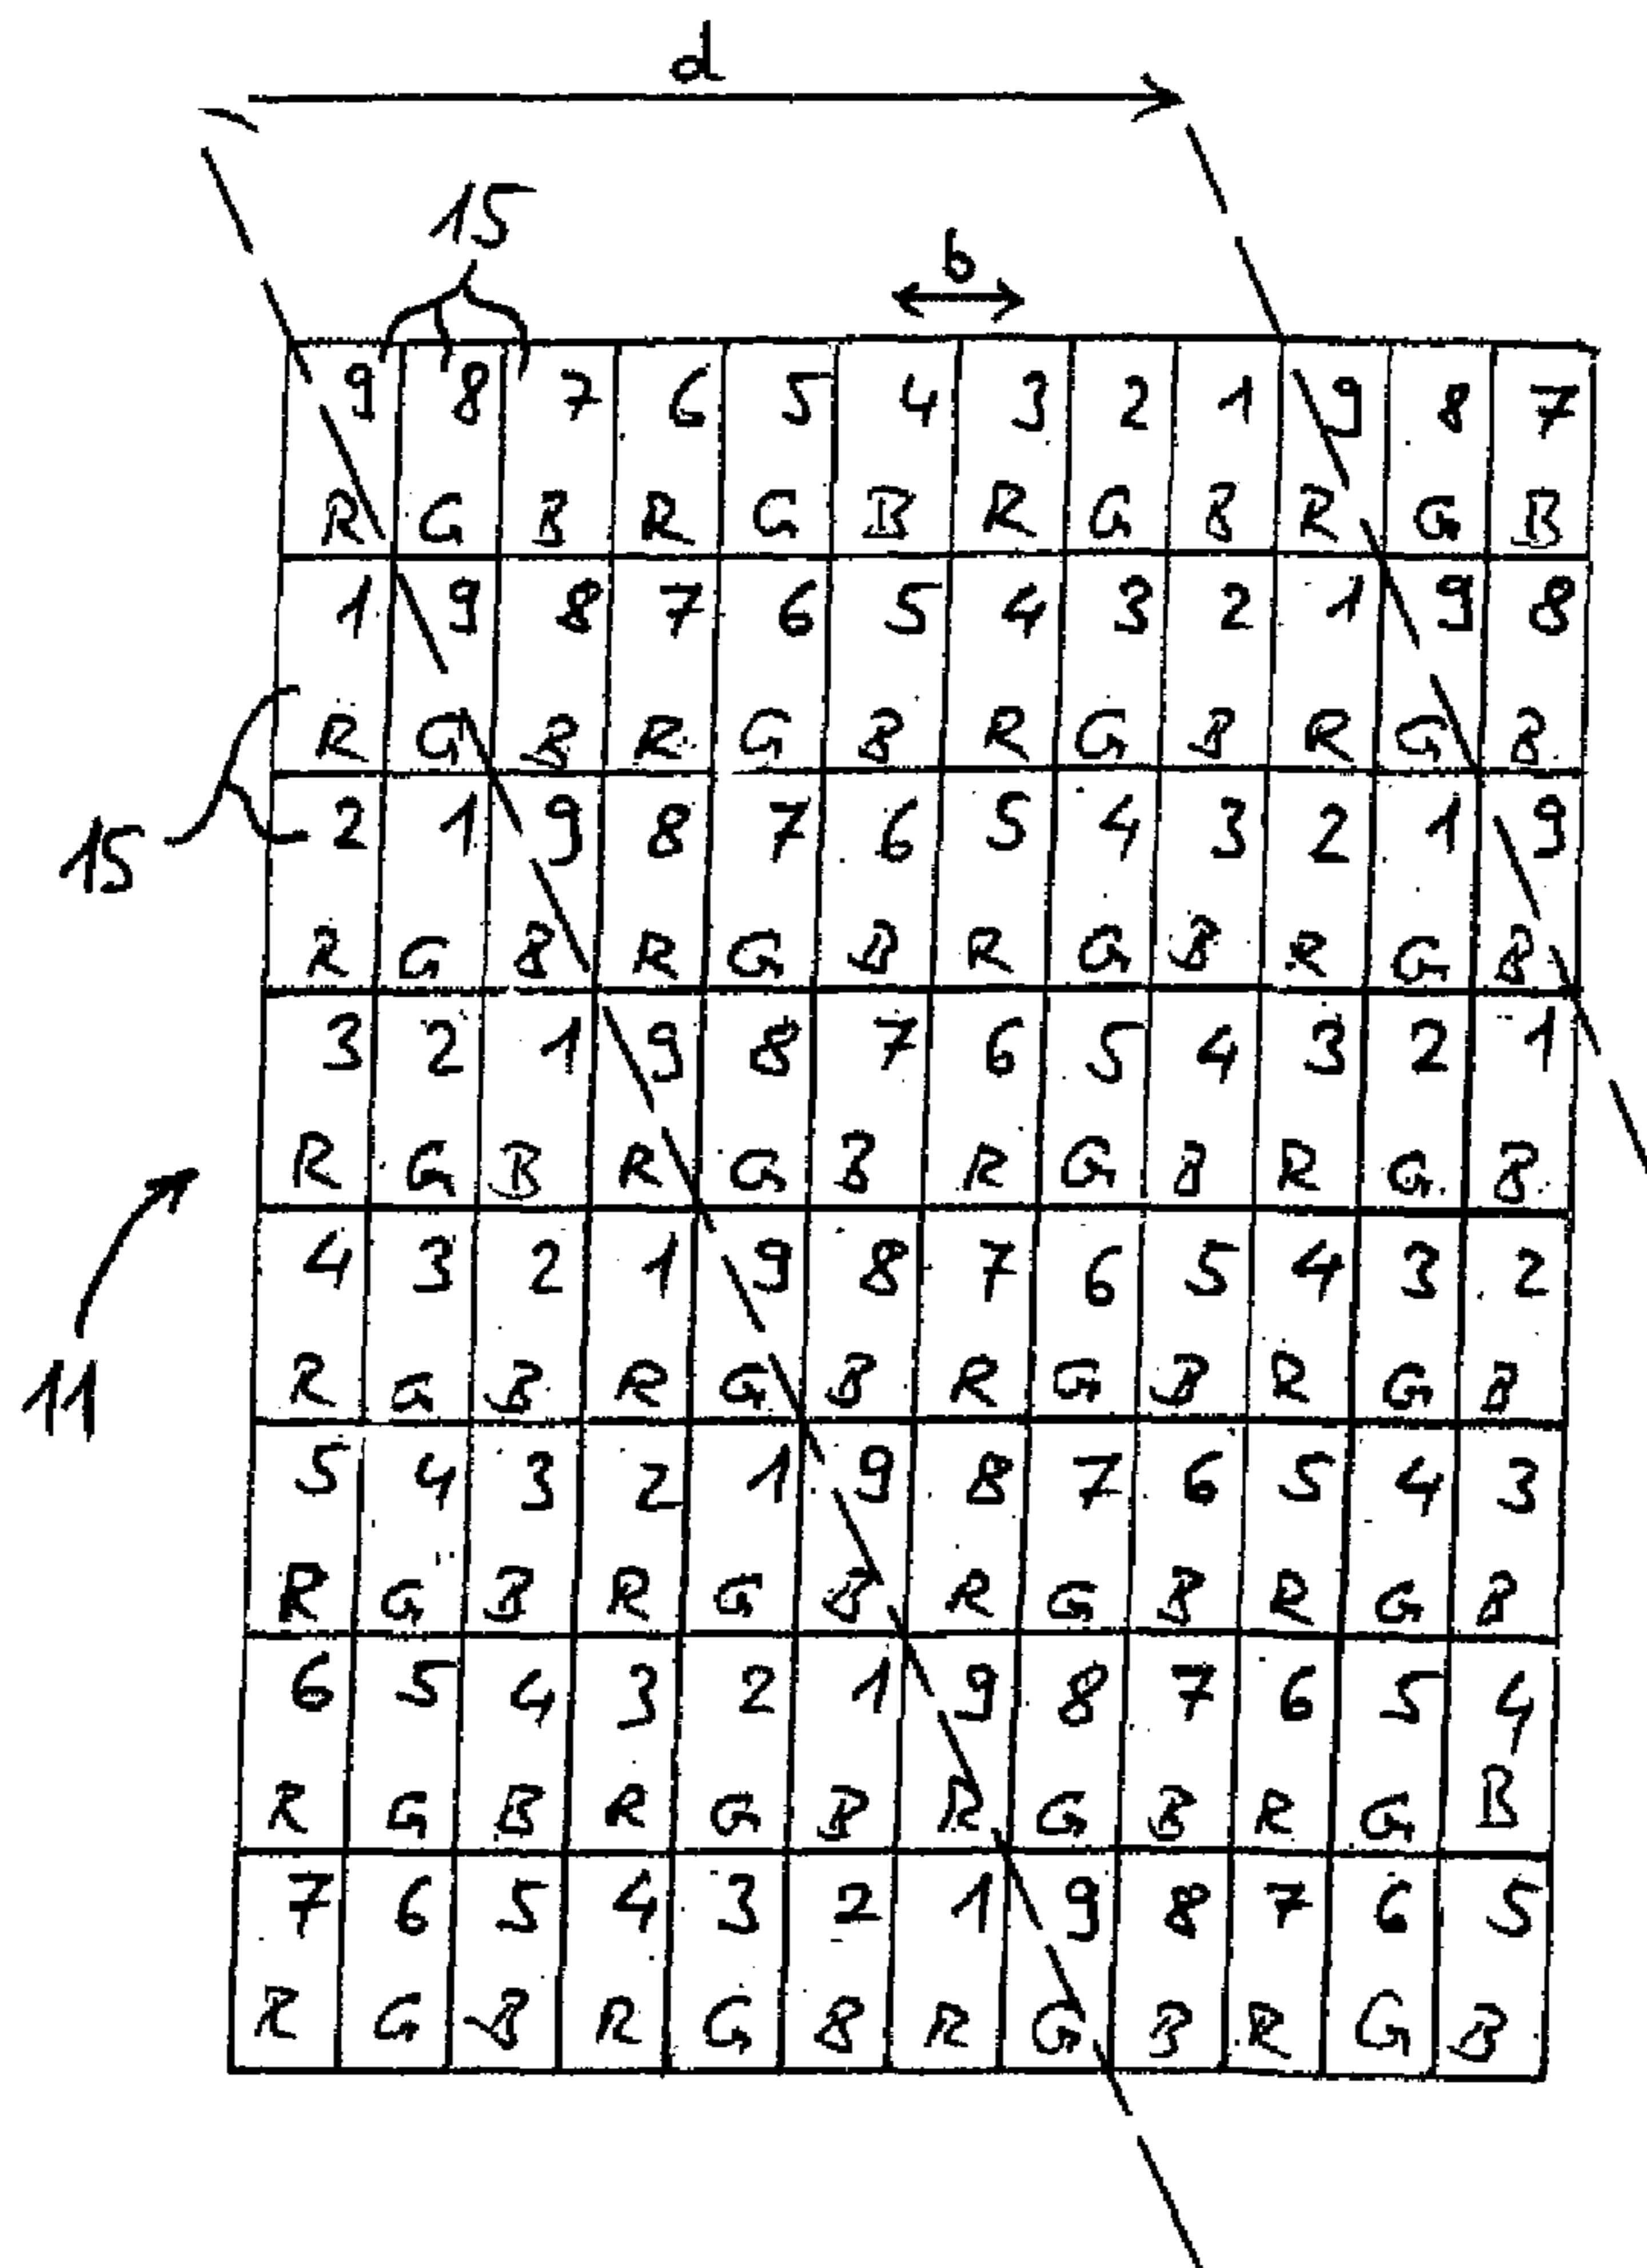 d
15
b
9 8 7 6 5 4 3 2 1 9 8 7
R G B R G B R G B R G B
1 9 8 7 6 5 4 3 2 1 9 8
R G B R G B R G B R G B
15
2 1 9 8 7 6 5 4 3 2 1 9
R G B R G B R G B R G B
3 2 1 9 8 7 6 5 4 3 2 1
R G B R G B R G B R G B
4 3 2 1 9 8 7 6 5 4 3 2
11
R G B R G B R G B R G B
5 4 3 2 1 9 8 7 6 5 4 3
R G B R G B R G B R G B
6 5 4 3 2 1 9 8 7 6 5 4
R G B R G B R G B R G B
7 6 5 4 3 2 1 9 8 7 6 5
R G B R G B R G B R G B